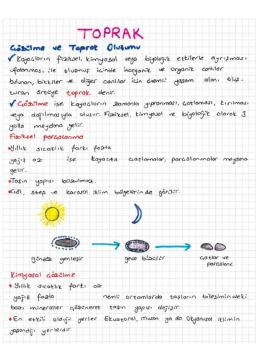 TOPRAK
Çözülme ve Toprak Oluşumu
✓ Kayaçların fiziksel, kimyasal veya biyolojik etkilerle ayrışması,
ufalanması ile oluşmuş içinde inorganik ve organik canlılar
bulunan, bitkiler ve diğer canlılar için önemli yaşam alanı oluş-
turan örtüye toprak denir.
✓ Çözülme ise kayaçların zamanla yıpranması, çatlaması, kırılması
veya dağılmasıyla oluşur. Fiziksel, kimyasal ve biyolojik olarak 3
yolla meydana gelir.
Fiziksel parçalanma
Yıllık sıcaklık farkı fazla
yağış az ise kayaçta çatlamalar, parçalanmalar meydana
gelir.
Taşın yapısı bozulmaz.
Çöl, step ve karasal iklim bölgelerinde görülür.
gündüz genleşir gece büzülür çatlar ve
parçalanır
Kimyasal çözülme
Yıllık sıcaklık farkı az
yağış fazla nemli ortamlarda taşların bileşimindeki
bazı mineraller çözünerek taşın yapısı değişir.
En etkili olduğu yerler Ekvatoral, muson ya da Okyanusal iklimin
yaşandığı yerlerdir.